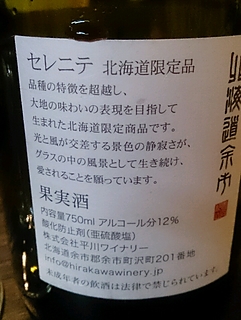 セレニテ 北海道限定品
品種の特徴を超越し、
大地の味わいの表現を目指して
生まれた北海道限定商品です。
光と風が交差する景色の静寂さが、
グラスの中の風景として生き続け、
愛されることを願っています。
果実酒
内容量750ml アルコール分12%
酸化防止剤(亜硫酸塩)
株式会社平川ワイナリー
北海道余市郡余市町沢町201番地
info@hirakawawinery.jp
未成年者の飲酒は法律で禁じられています。
北海道余市